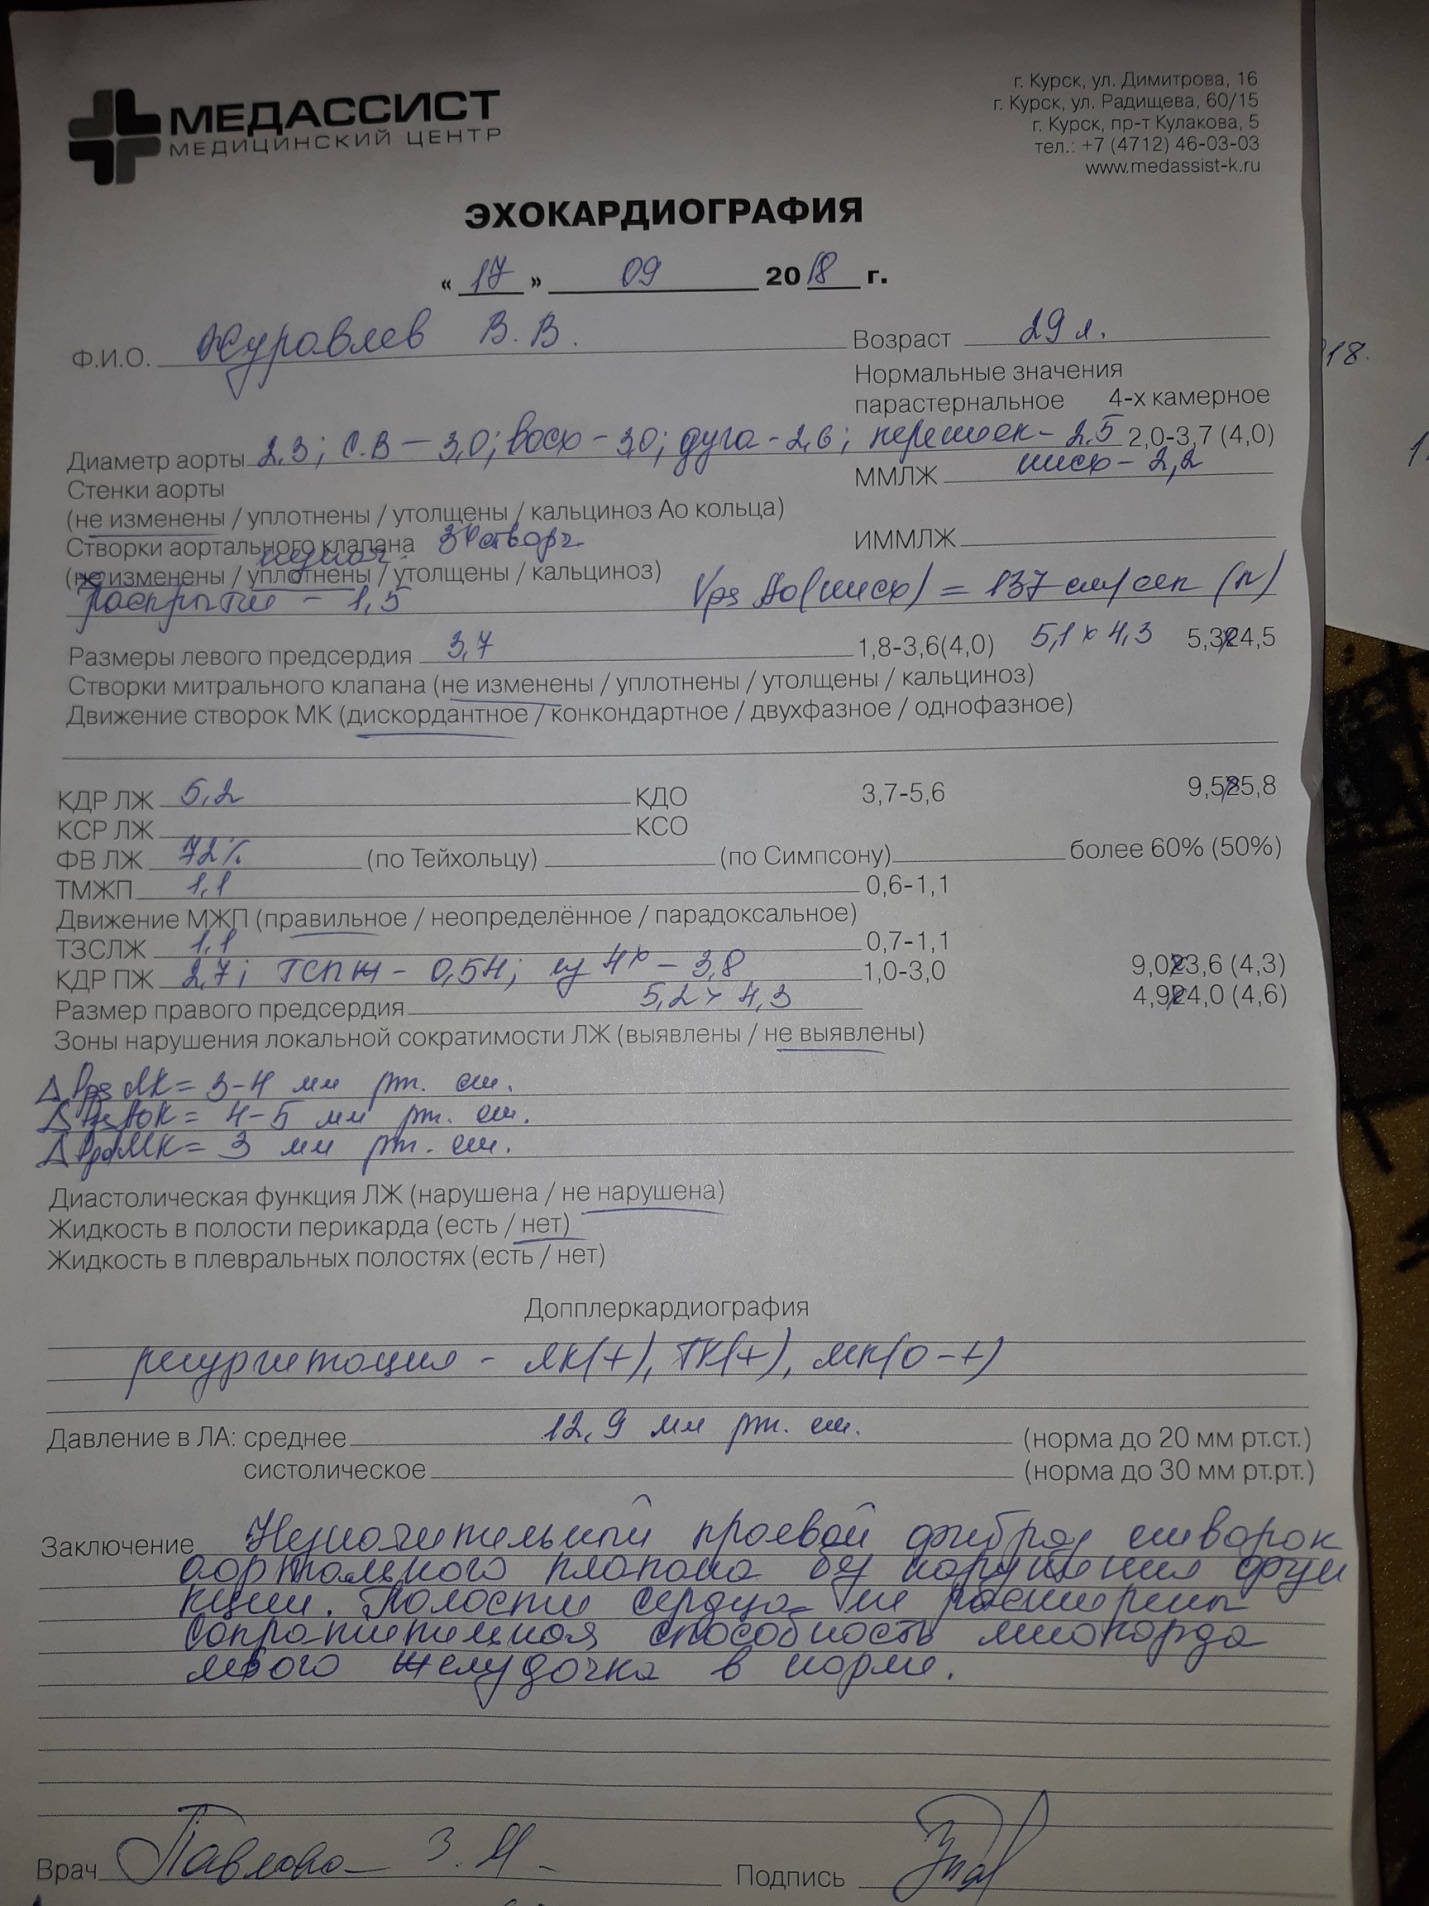 МЕДАССИСТ
МЕДИЦИНСКИЙ ЦЕНТР
г. Курск, ул. Димитрова, 16
г. Курск, ул. Радищева, 60/15
г. Курск, пр-т Кулакова, 5
тел.: +7 (4712) 46-03-03
www.medassist-k.ru
ЭХОКАРДИОГРАФИЯ
« 17 » 09 2018 г.
Ф.И.О. Журавлев В. В. Возраст 29 л.
Нормальные значения
парастернальное 4-х камерное
Диаметр аорты 2,3; С.В – 3,0; восх – 3,0; дуга – 2,6; перешеек – 2,5 2,0-3,7 (4,0)
нисх – 2,2
Стенки аорты ММЛЖ
(не изменены / уплотнены / утолщены / кальциноз Ао кольца)
Створки аортального клапана 3 створч. ИММЛЖ
(не изменены / уплотнены / утолщены / кальциноз)
раскрытие – 1,5 Vps Ао(нисх) = 137 см/сек (N)
Размеры левого предсердия 3,7 1,8-3,6(4,0) 5,1 х 4,3 5,3х4,5
Створки митрального клапана (не изменены / уплотнены / утолщены / кальциноз)
Движение створок МК (дискордантное / конкондартное / двухфазное / однофазное)
КДР ЛЖ 5,2 КДО 3,7-5,6 9,5х5,8
КСР ЛЖ КСО
ФВ ЛЖ 72% (по Тейхольцу) (по Симпсону) более 60% (50%)
ТМЖП 1,1 0,6-1,1
Движение МЖП (правильное / неопределённое / парадоксальное)
ТЗСЛЖ 1,1 0,7-1,1
КДР ПЖ 2,7; ТСПЖ – 0,54; из 4х – 3,8 1,0-3,0 9,0х3,6 (4,3)
Размер правого предсердия 5,2 х 4,3 4,9х4,0 (4,6)
Зоны нарушения локальной сократимости ЛЖ (выявлены / не выявлены)
Δ Pps ЛК = 3-4 мм рт. ст.
Δ Pps АоК = 4-5 мм рт. ст.
Δ Ppd МК = 3 мм рт. ст.
Диастолическая функция ЛЖ (нарушена / не нарушена)
Жидкость в полости перикарда (есть / нет)
Жидкость в плевральных полостях (есть / нет)
Допплеркардиография
регургитация – ЛК(+), ТК(+), МК(0-+)
Давление в ЛА: среднее 12,9 мм рт. ст. (норма до 20 мм рт.ст.)
систолическое (норма до 30 мм рт.рт.)
Заключение Незначительный краевой фиброз створок
аортального клапана без нарушения фун
кции. Полости сердца не расширены
Сократительная способность миокарда
левого желудочка в норме.
Врач Павлова З. И. Подпись